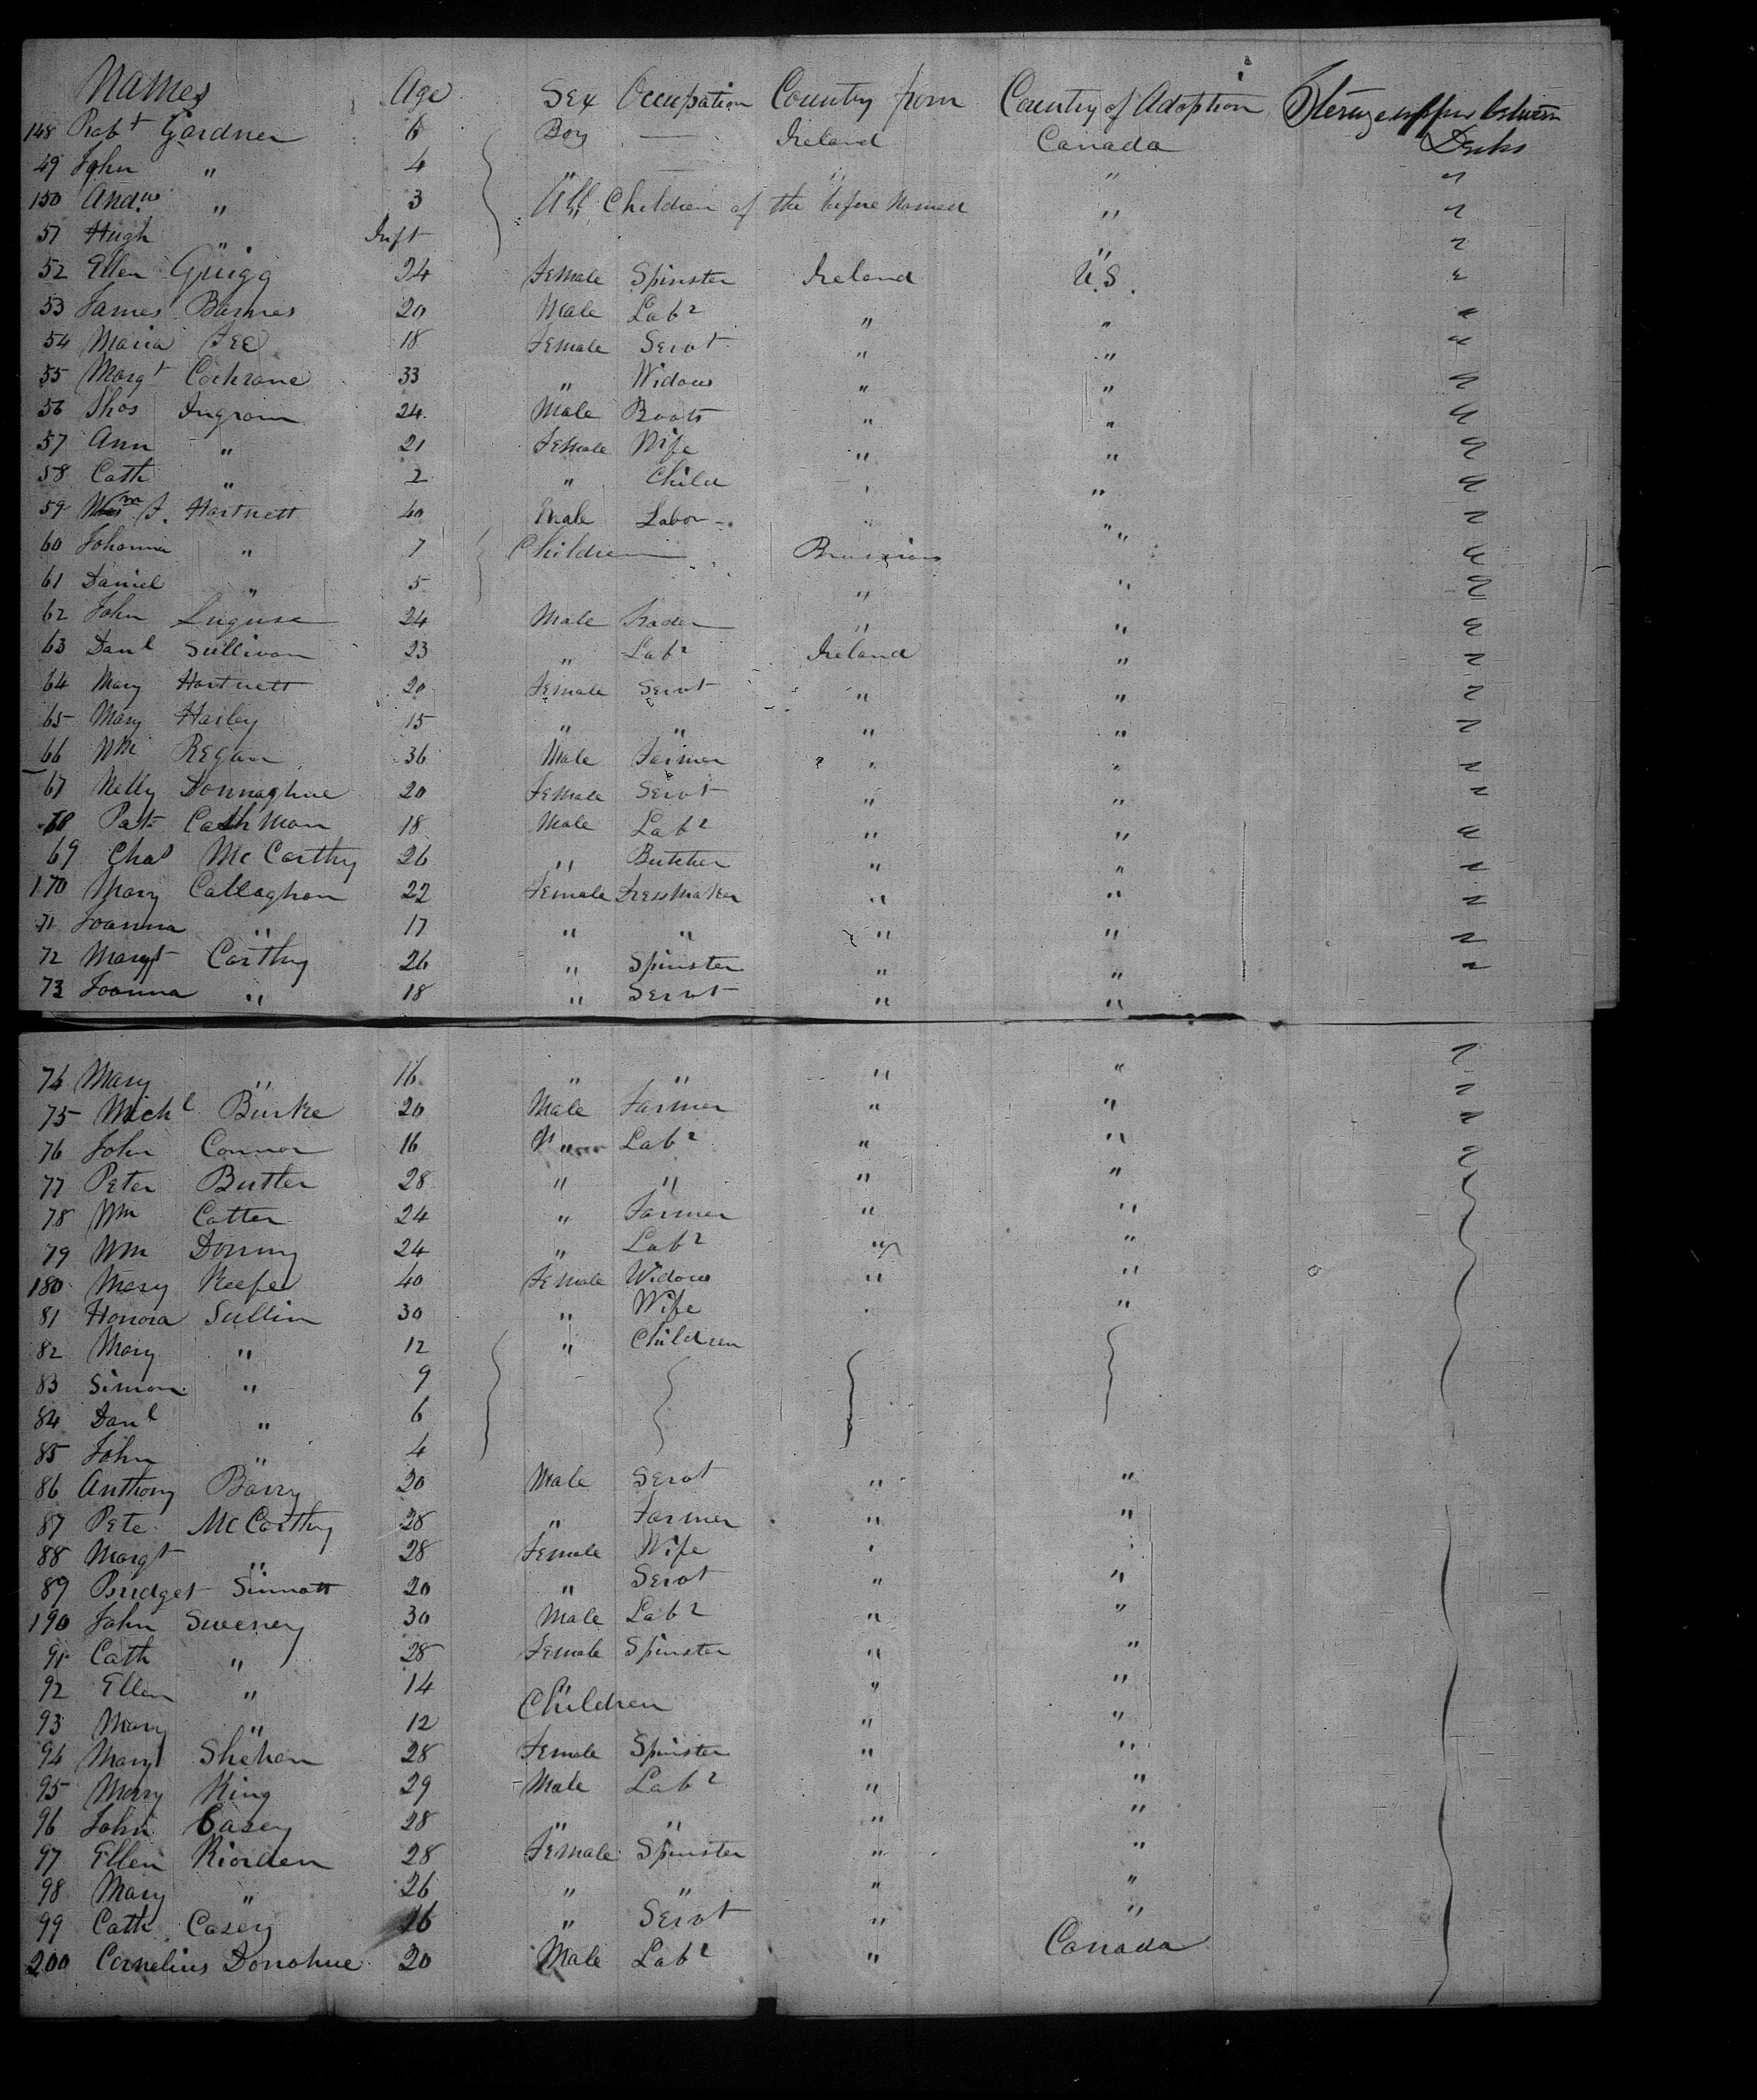 Names Age Sex Occupation Country from Country of Adoption Steerage upper between Decks
148 Robt Gardner 6 Boy — Ireland Canada
49 John " 4 " — " " "
150 Andw " 3 All Children of the before Named " "
51 Hugh " Inft " "
52 Ellen Quigg 24 Female Spinster Ireland U.S. "
53 James Barnes 20 Male Labr " " "
54 Maria Fee 18 Female Servt " " "
55 Margt Cochrane 33 " Widow " " "
56 Thos Ingram 24 Male Boots " " "
57 Ann " 21 Female Wife " " "
58 Cath " 2 " Child " " "
59 Wm J. Hartnett 40 Male Labor " " "
60 Johanna " 7 Children " "
61 Daniel " 5 " " "
62 John 24 Male Trader " " "
63 Danl Sullivan 23 " Labr Ireland " "
64 Mary Hartnett 20 Female Servt " " "
65 Mary Harley 15 " " " " "
66 Wm Regan 36 Male Farmer " " "
67 Nelly Donnaghue 20 Female Servt " " "
68 Pat Cashman 18 Male Labr " " "
69 Chas McCarthy 26 " Butcher " " "
170 Mary Callaghan 22 Female Dressmaker " " "
71 Joanna " 17 " " " " "
72 Margt Carthy 26 " Spinster " " "
73 Joanna " 18 " Servt " "
74 Mary " 16 " " " " "
75 Michl Burke 20 Male Farmer " " "
76 John Connor 16 " Labr " " "
77 Peter Butler 28 " " " " "
78 Wm Cotter 24 " Farmer " "
79 Wm Donny 24 " Labr " "
180 Mary Keefe 40 Female Widow " "
81 Honora Sullivn 30 " Wife " "
82 Mary " 12 " Children
83 Simon " 9
84 Danl " 6
85 John " 4
86 Anthony Barry 20 Male Servt " "
87 Pete McCarthy 28 " Farmer " "
88 Margt " 28 Female Wife " "
89 Bridget Sinnott 20 " Servt " "
190 John Sweeney 30 Male Labr " "
91 Cath " 28 Female Spinster " "
92 Ellen " 14 " " "
93 Mary " 12 Children " "
94 Mary Shehan 28 Female Spinster " "
95 Mary King 29 Male Labr " "
96 John Casey 28 " " " "
97 Ellen Riorden 28 Female Spinster " "
98 Mary " 26 " " " "
99 Cath Casey 16 " Servt " "
200 Cornelius Donohue 20 Male Labr " Canada